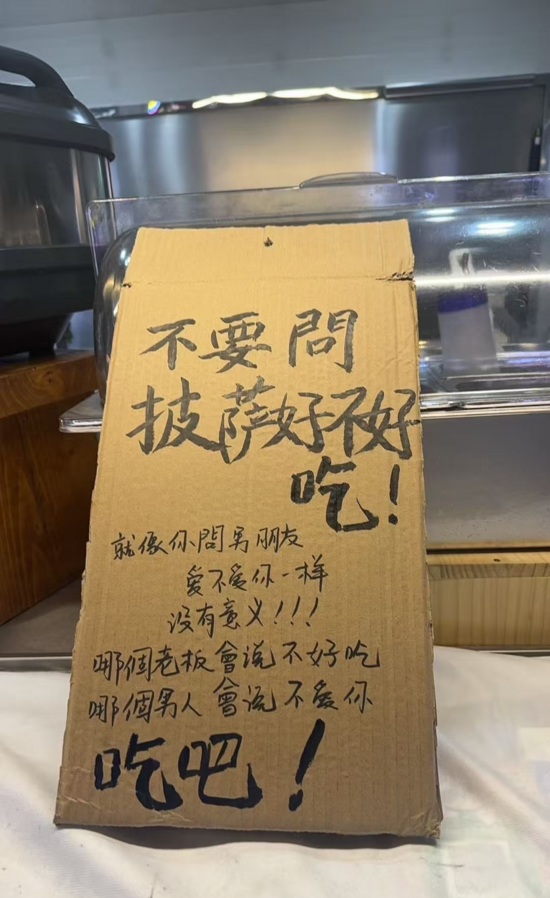 不要問
披萨好不好
吃！
就像你問男朋友
愛不愛你一样
没有意义！！！
哪個老板會说不好吃
哪個男人會说不愛你
吃吧！